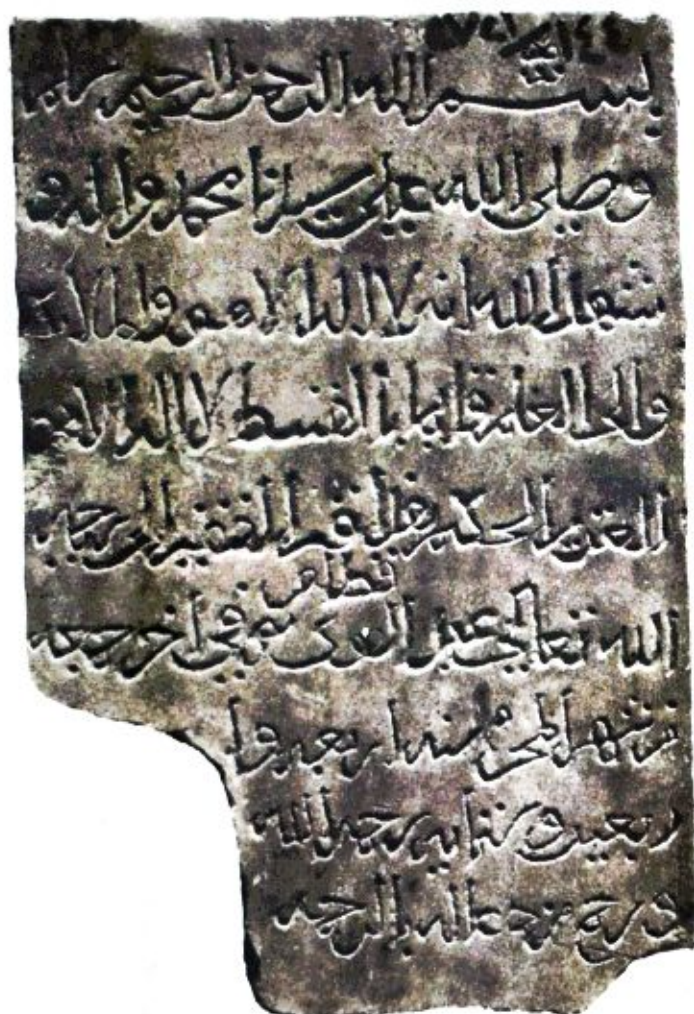 بسم الله الرحمن الرحيم
وصلى الله على سيدنا محمد واله و
شهد الله انه لا اله الا هو والملا
والوا العلم قايما بالقسط لا اله الا هو
العزيز الحكيم هذا قبر الفقير الى رحمة
الله تعالى عبد توفي اخر جمعة
من شهر المحرم سنة اربعة وا
ربعين رحمه الله
ورحم من دعا له بالرحمة